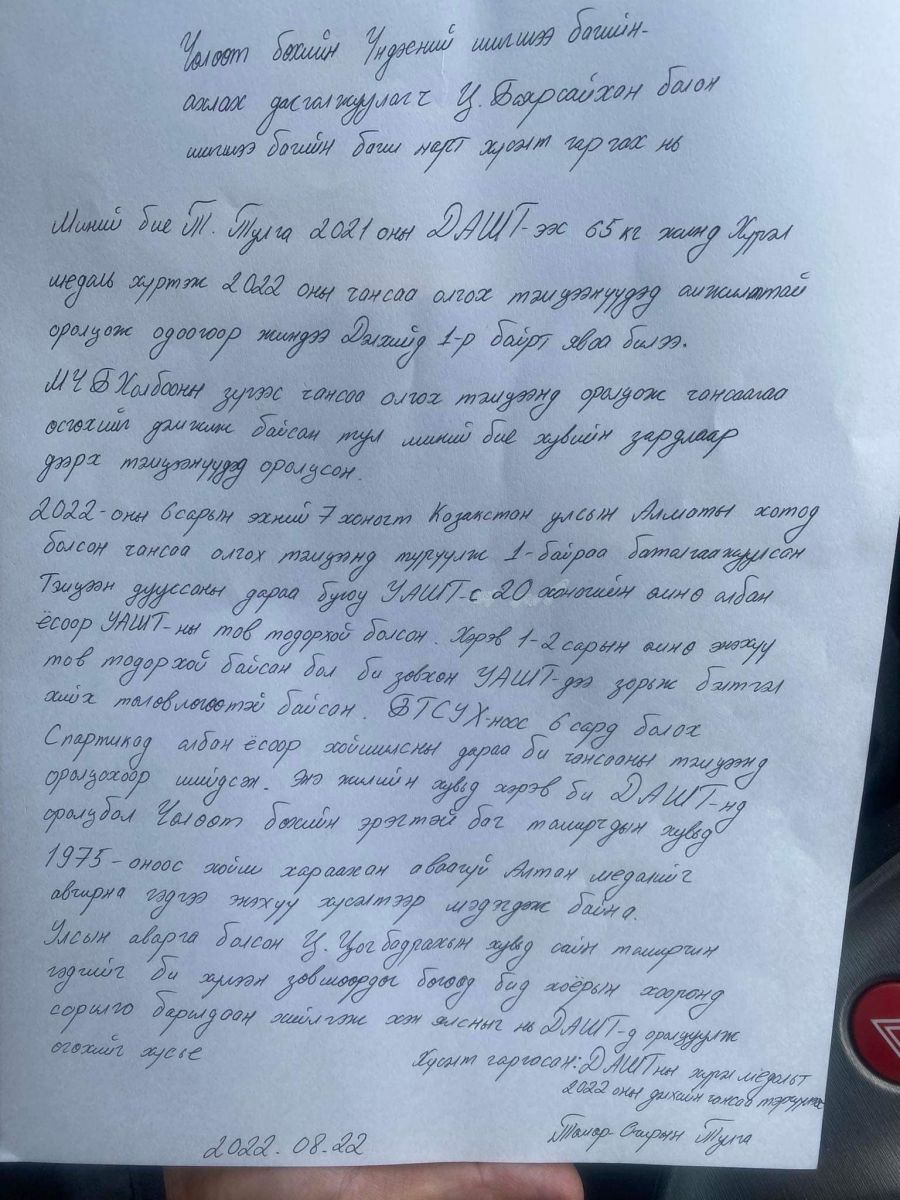 Чөлөөт бөхийн Үндэсний шигшээ багийн-
ахлах дасгалжуулагч Ц. Баярсайхан болон
шигшээ багийн багш нарт хүсэлт гаргах нь
Миний бие Т. Тулга 2021 оны ДАШТ-ээс 65 кг жинд Хүрэл
медаль хүртэж 2022 оны чансаа олгох тэмцээнүүдэд амжилттай
оролцож одоогоор жиндээ Дэлхийд 1-р байрт яваа билээ.
МЧБХолбооны зүгээс чансаа олгох тэмцээнд оролцож чансаагаа
өсгөхийг дэмжиж байсан тул миний бие хувийн зардлаар
дээрх тэмцээнүүдэд оролцсон.
2022-оны 6 сарын эхний 7 хоногт Казакстан улсын Алматы хотод
болсон чансаа олгох тэмцээнд түрүүлж 1-байраа баталгаажуулсан
Тэмцээн дууссаны дараа буюу УАШТ-с 20 хоногийн өмнө албан
ёсоор УАШТ-ны тов тодорхой болсон. Хэрэв 1-2 сарын өмнө энэхүү
тов тодорхой байсан бол би зөвхөн УАШТ-дээ зорьж бэлтгэл
хийх төлөвлөгөөтэй байсан. БТСУХ-ноос 6 сард болох
Спартикад албан ёсоор хойшилсны дараа би чансааны тэмцээнд
оролцохоор шийдсэн. Энэ жилийн хувьд хэрэв би ДАШТ-нд
оролцвол Чөлөөт бөхийн эрэгтэй баг тамирчдын хувьд
1975-оноос хойш хараахан аваагүй Алтан медалийг
авчирна гэдгээ энэхүү хүсэлтээр мэдэгдэж байна.
Улсын аварга болсон Ц. Цогбадрахын хувьд сайн тамирчин
гэдгийг би хүлээн зөвшөөрдөг бөгөөд бид хоёрын хооронд
сорилго барилдаан хийлгэж хэн ялсныг нь ДАШТ-д оролцуулж
өгөхийг хүсье
Хүсэлт гаргасан: ДАШТны хүрэл медальт
2022 оны дэлхийн чансаа тэргүүлэгч
Төмөр-Очирын Тулга
2022.08.22